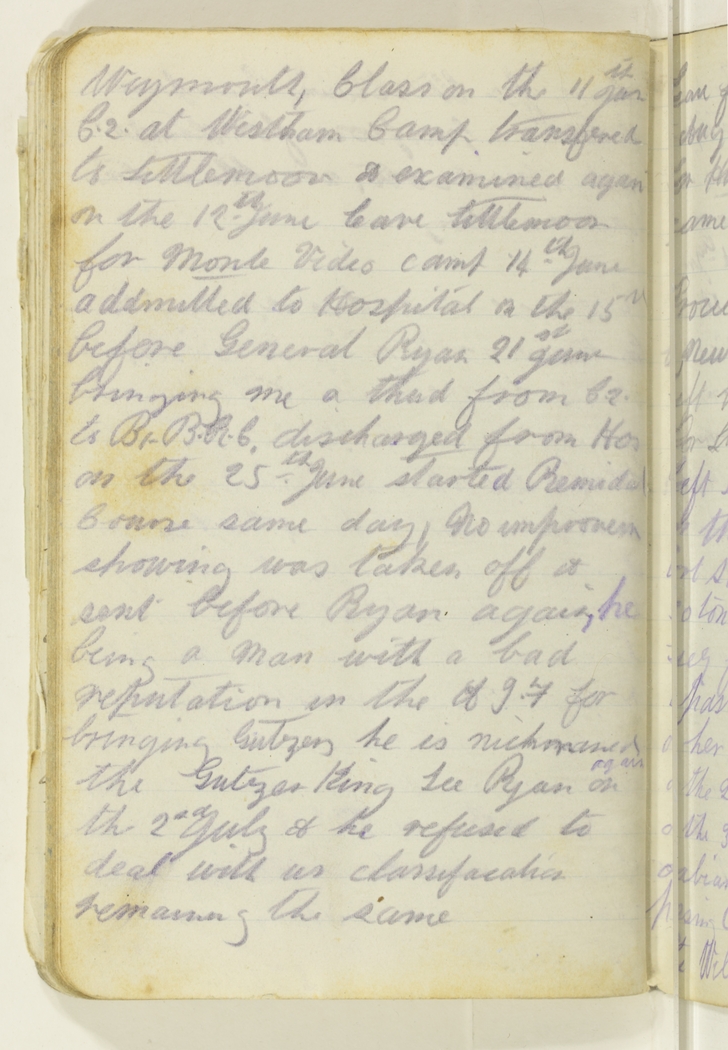 Weymouth, Class on the 11th June
C.2. at Westham Camp transfered
to Littlemoor & examined again
on the 12th June leave Littlemoor
for Monte Video camp 14th June
addmitted to Hospital on the 15th
before General Ryan 21st June
bringing me a third from C2.
to discharged from Hos
on the 25th June started Remidal
Course same day, No improvem
showing was taken off &
sent before Ryan again, he
being a man with a bad
reputation in the A I F for
bringing Gutzers he is nicknamed
the Gutzer King See Ryan again on
th 2nd July & he refused to
deal with us classifacation
remaining the same